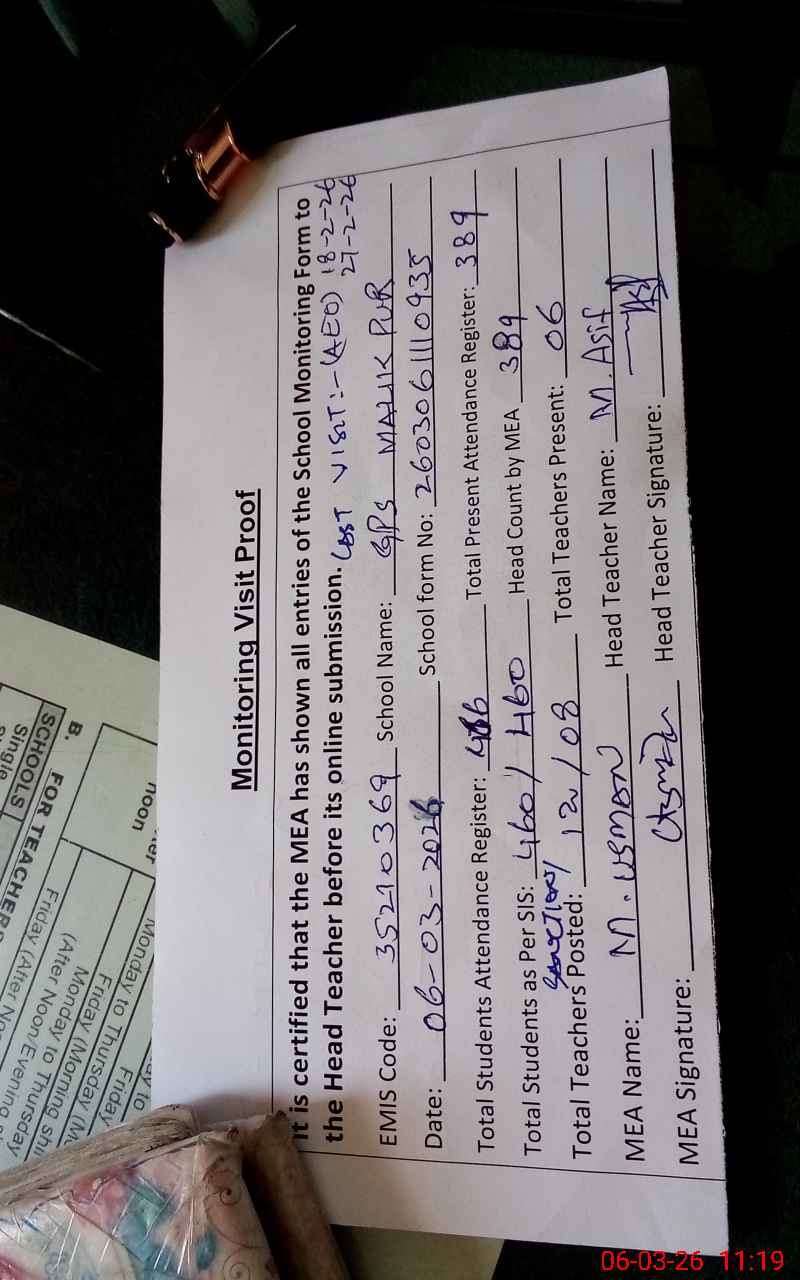 Monitoring Visit Proof
It is certified that the MEA has shown all entries of the School Monitoring Form to
the Head Teacher before its online submission. Last VISIT:- (AEO) 18-2-26
27-2-26
EMIS Code: 35210369 School Name: GPS MALIK PUR
Date: 06-03-2026 School form No: 2603061110935
Total Students Attendance Register: 466 Total Present Attendance Register: 389
Total Students as Per SIS: 460/460 Head Count by MEA 389
Sanction/
Total Teachers Posted: 12/08 Total Teachers Present: 06
MEA Name: M. USMAN Head Teacher Name: M. Asif
MEA Signature: Usman Head Teacher Signature:
B.
FOR TEACHERS
SCHOOLS
Single
noon
Monday to Thursday
Friday
Friday (After Noo
(After Noon/Evening
Monday to Thursday
Friday (Morning shi
Monday to Thursday
Friday (M
06-03-26 11:19